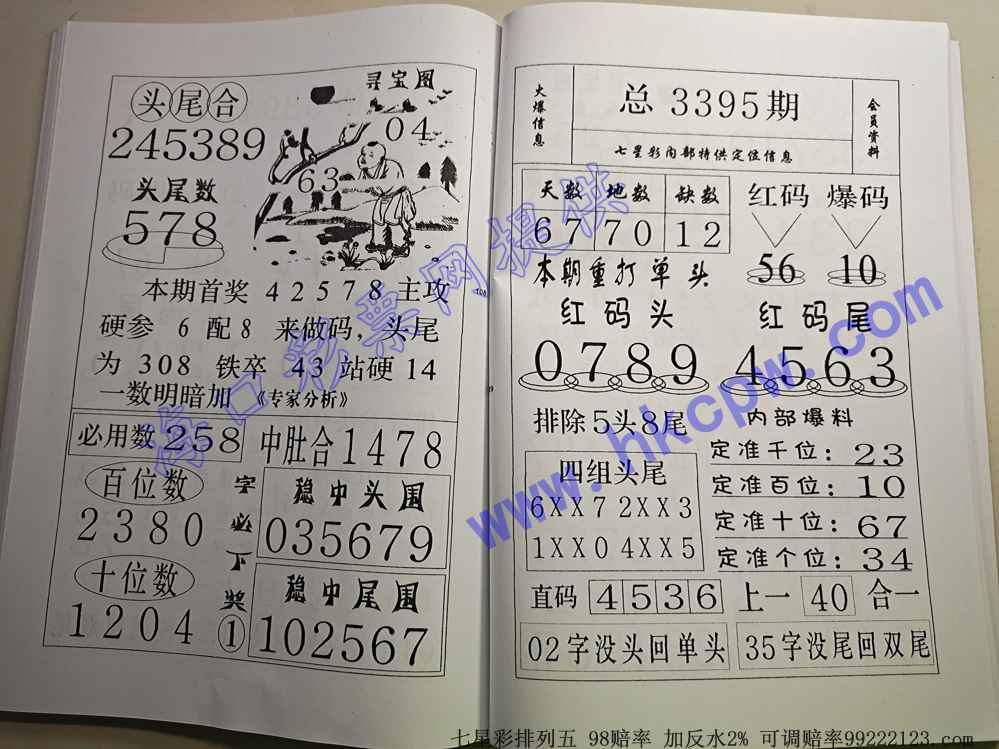 头尾合
245389
寻宝图
04
63
头尾数
578
本期首奖 42578 主攻
硬参 6 配8 来做码，头尾
为 308 铁卒 43 站硬 14
一数明暗加 《专家分析》
必用数 258
中肚合1478
百位数
2380
十位数
1204
字必下奖①
稳中头围
035679
稳中尾围
102567
火爆信息
总3395期
七星彩内部特供定位信息
会员资料
天数 地数 缺数
67 70 12
红码 爆码
56 10
本期重打单头
红码头
0789
红码尾
4563
排除5头8尾
四组头尾
6XX7 2XX3
1XX0 4XX5
内部爆料
定准千位：23
定准百位：10
定准十位：67
定准个位：34
直码 4536 上一 40 合一
02字没头回单头
35字没尾回双尾
海口彩票网提供
www.hkcpw.com
七星彩排列五 98赔率 加反水2% 可调赔率99222123.com